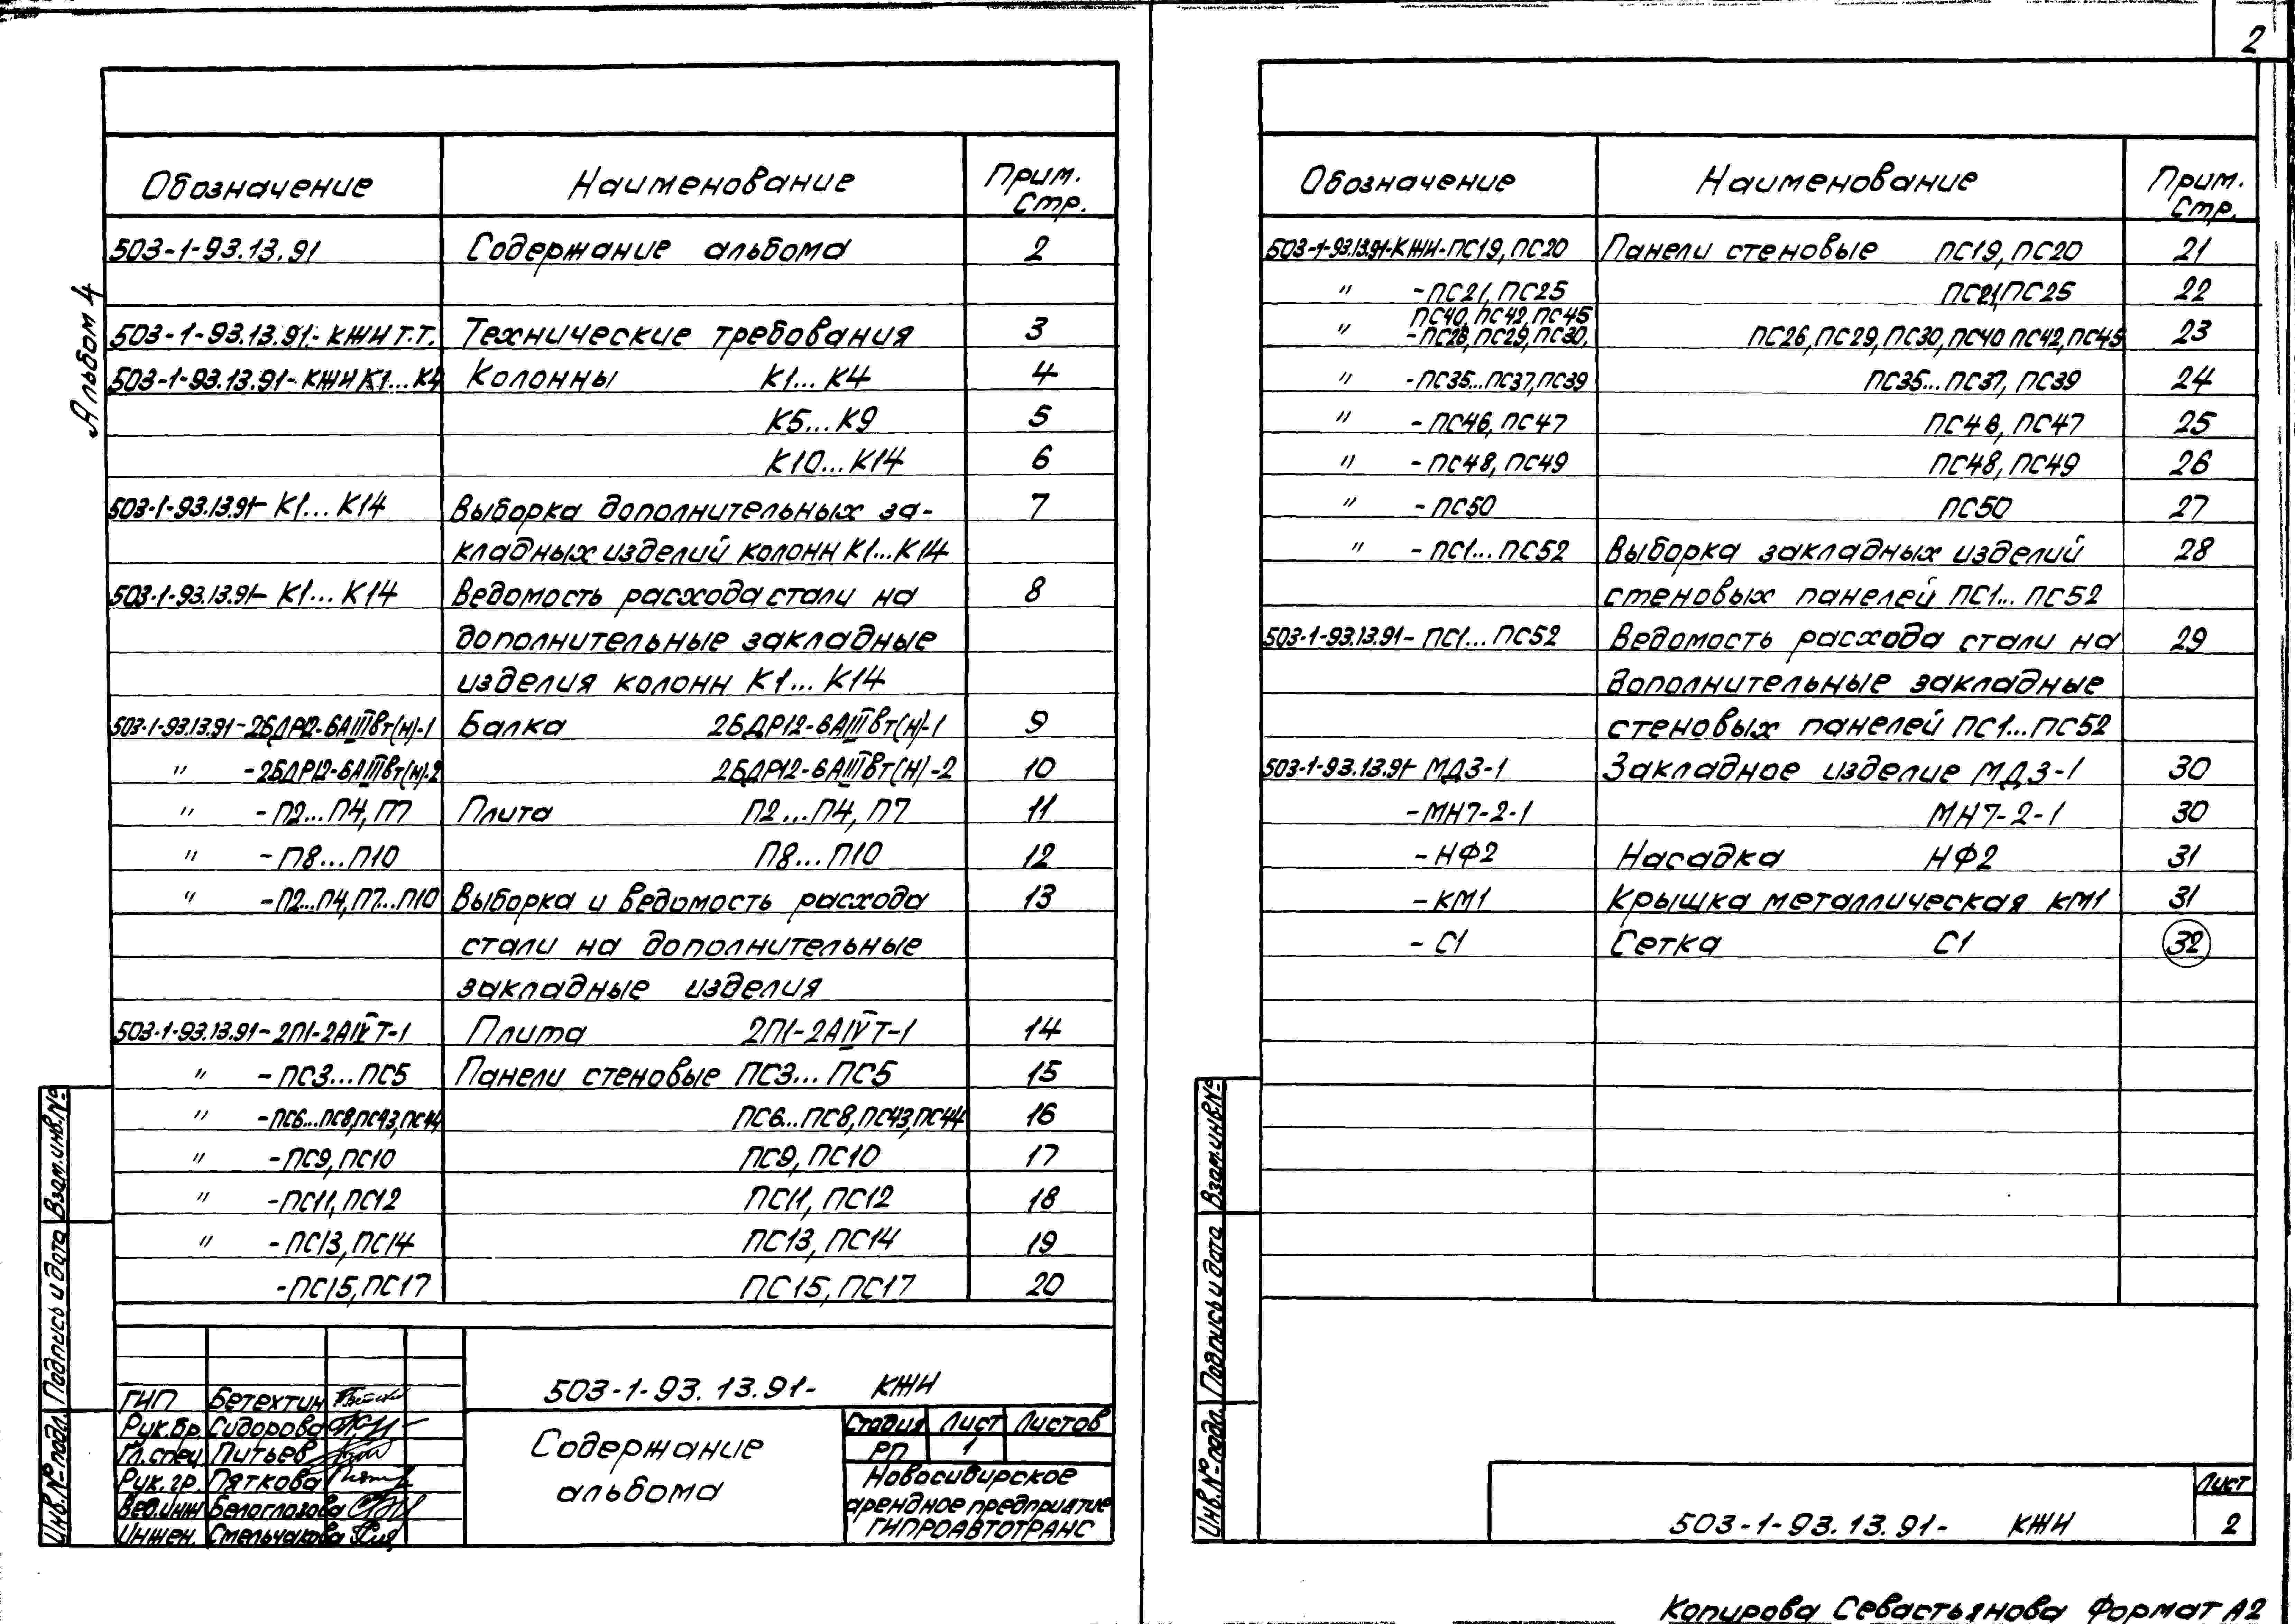 2
Альбом 4
Обозначение Наименование Прим. Стр.
503-1-93.13.91 Содержание альбома 2
503-1-93.13.91.-КЖИ Т.Т. Технические требования 3
503-1-93.13.91-КЖИ К1...К4 Колонны К1...К4 4
К5...К9 5
К10...К14 6
503-1-93.13.91-К1...К14 Выборка дополнительных за- 7
кладных изделий колонн К1...К14
503-1-93.13.91-К1...К14 Ведомость расхода стали на 8
дополнительные закладные
изделия колонн К1...К14
503-1-93.13.91-2БДР12-6АIIIвт(н)-1 Балка 2БДР12-6АIIIвт(н)-1 9
" -2БДР12-6АIIIвт(н)-2 2БДР12-6АIIIвт(н)-2 10
" -П2...П4, П7 Плита П2...П4, П7 11
" -П8...П10 П8...П10 12
" -П2...П4, П7...П10 Выборка и ведомость расхода 13
стали на дополнительные
закладные изделия
503-1-93.13.91-2П1-2АIVТ-1 Плита 2П1-2АIVТ-1 14
" -ПС3...ПС5 Панели стеновые ПС3...ПС5 15
" -ПС6...ПС8,ПС43,ПС44 ПС6...ПС8,ПС43,ПС44 16
" -ПС9, ПС10 ПС9, ПС10 17
" -ПС11, ПС12 ПС11, ПС12 18
" -ПС13, ПС14 ПС13, ПС14 19
-ПС15, ПС17 ПС15, ПС17 20
Инв.№ подл. Подпись и дата Взам.инв.№
ГИП Бетехтин
Рук.бр. Сидорова
Гл.спец Питьев
Рук.гр. Пяткова
Вед.инж Белоглазова
Инжен. Стельчакова
503-1-93.13.91- КЖИ
Содержание
альбома
Стадия Лист Листов
РП 1
Новосибирское
арендное предприятие
ГИПРОАВТОТРАНС
Обозначение Наименование Прим. Стр.
503-1-93.13.91-КЖИ-ПС19, ПС20 Панели стеновые ПС19, ПС20 21
" -ПС21, ПС25 ПС21,ПС25 22
ПС40, ПС42, ПС45
" -ПС26, ПС29, ПС30, ПС26, ПС29, ПС30, ПС40 ПС42, ПС45 23
" -ПС35...ПС37, ПС39 ПС35...ПС37, ПС39 24
" -ПС46, ПС47 ПС46, ПС47 25
" -ПС48, ПС49 ПС48, ПС49 26
" -ПС50 ПС50 27
" -ПС1...ПС52 Выборка закладных изделий 28
стеновых панелей ПС1...ПС52
503-1-93.13.91-ПС1...ПС52 Ведомость расхода стали на 29
дополнительные закладные
стеновых панелей ПС1...ПС52
503-1-93.13.91-МД3-1 Закладное изделие МД3-1 30
-МН7-2-1 МН7-2-1 30
-НФ2 Насадка НФ2 31
-КМ1 Крышка металлическая КМ1 31
-С1 Сетка С1 32
Инв.№ подл. Подпись и дата Взам.инв.№
503-1-93.13.91- КЖИ
Лист
2
Копирова Севастьянова Формат А2